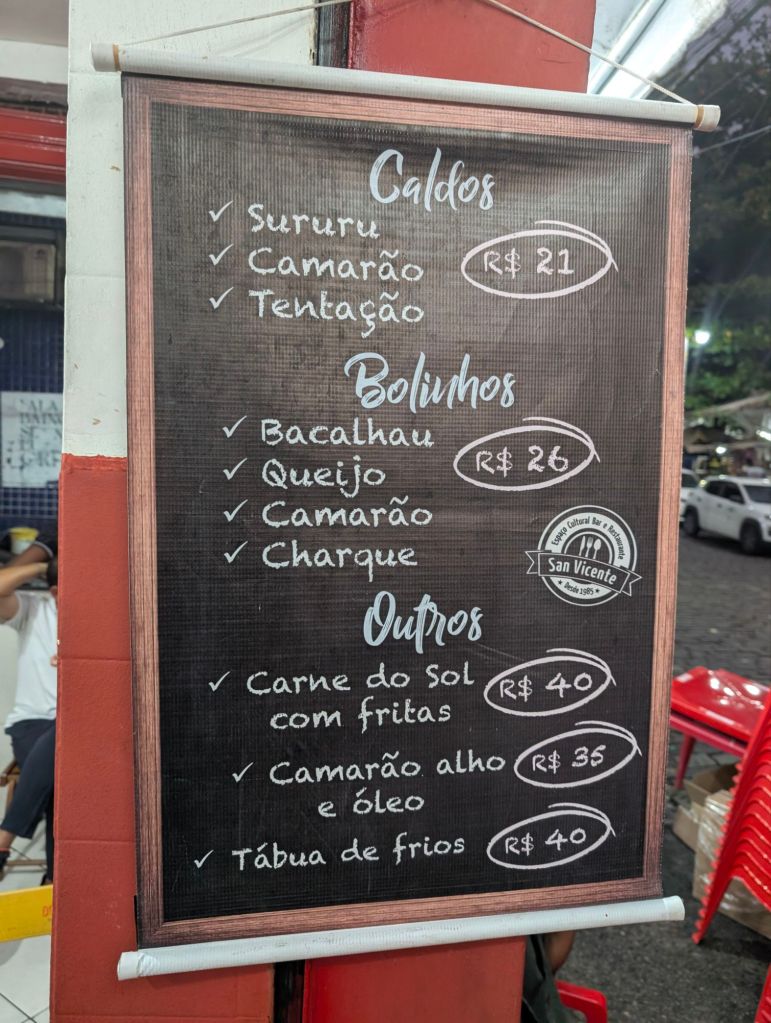 Caldos
✓ Sururu
✓ Camarão
R$ 21
✓ Tentação
Bolinhos
✓ Bacalhau
✓ Queijo
R$ 26
✓ Camarão
✓ Charque
Espaço Cultural Bar e Restaurante
San Vicente
★ Desde 1985 ★
Outros
✓ Carne do Sol
com fritas
R$ 40
✓ Camarão alho
e óleo
R$ 35
✓ Tábua de frios
R$ 40